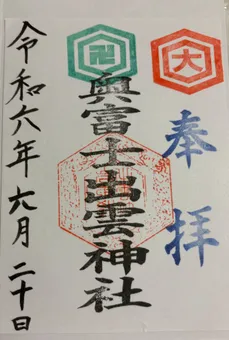 奉拝
大
卍
奥富士出雲神社
令和六年六月二十日